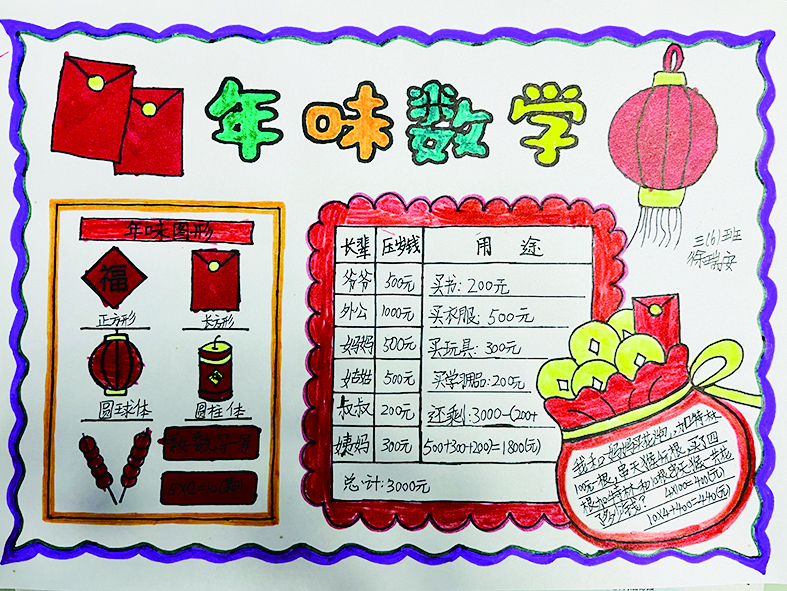 年味数学
三(6)班
徐瑞安
年味图形
福
正方形
长方形
圆球体
圆柱体
长辈 压岁钱 用 途
爷爷 500元 买书:200元
外公 1000元 买衣服:500元
妈妈 500元 买玩具:300元
姑姑 500元 买学习用品:200元
叔叔 200元 还剩:3000-(200+
姨妈 300元 500+300+200)=1800(元)
总计:3000元
我和妈妈买花炮,加特林
100元一根
4X100=400(元)
10X4+400=440(元)